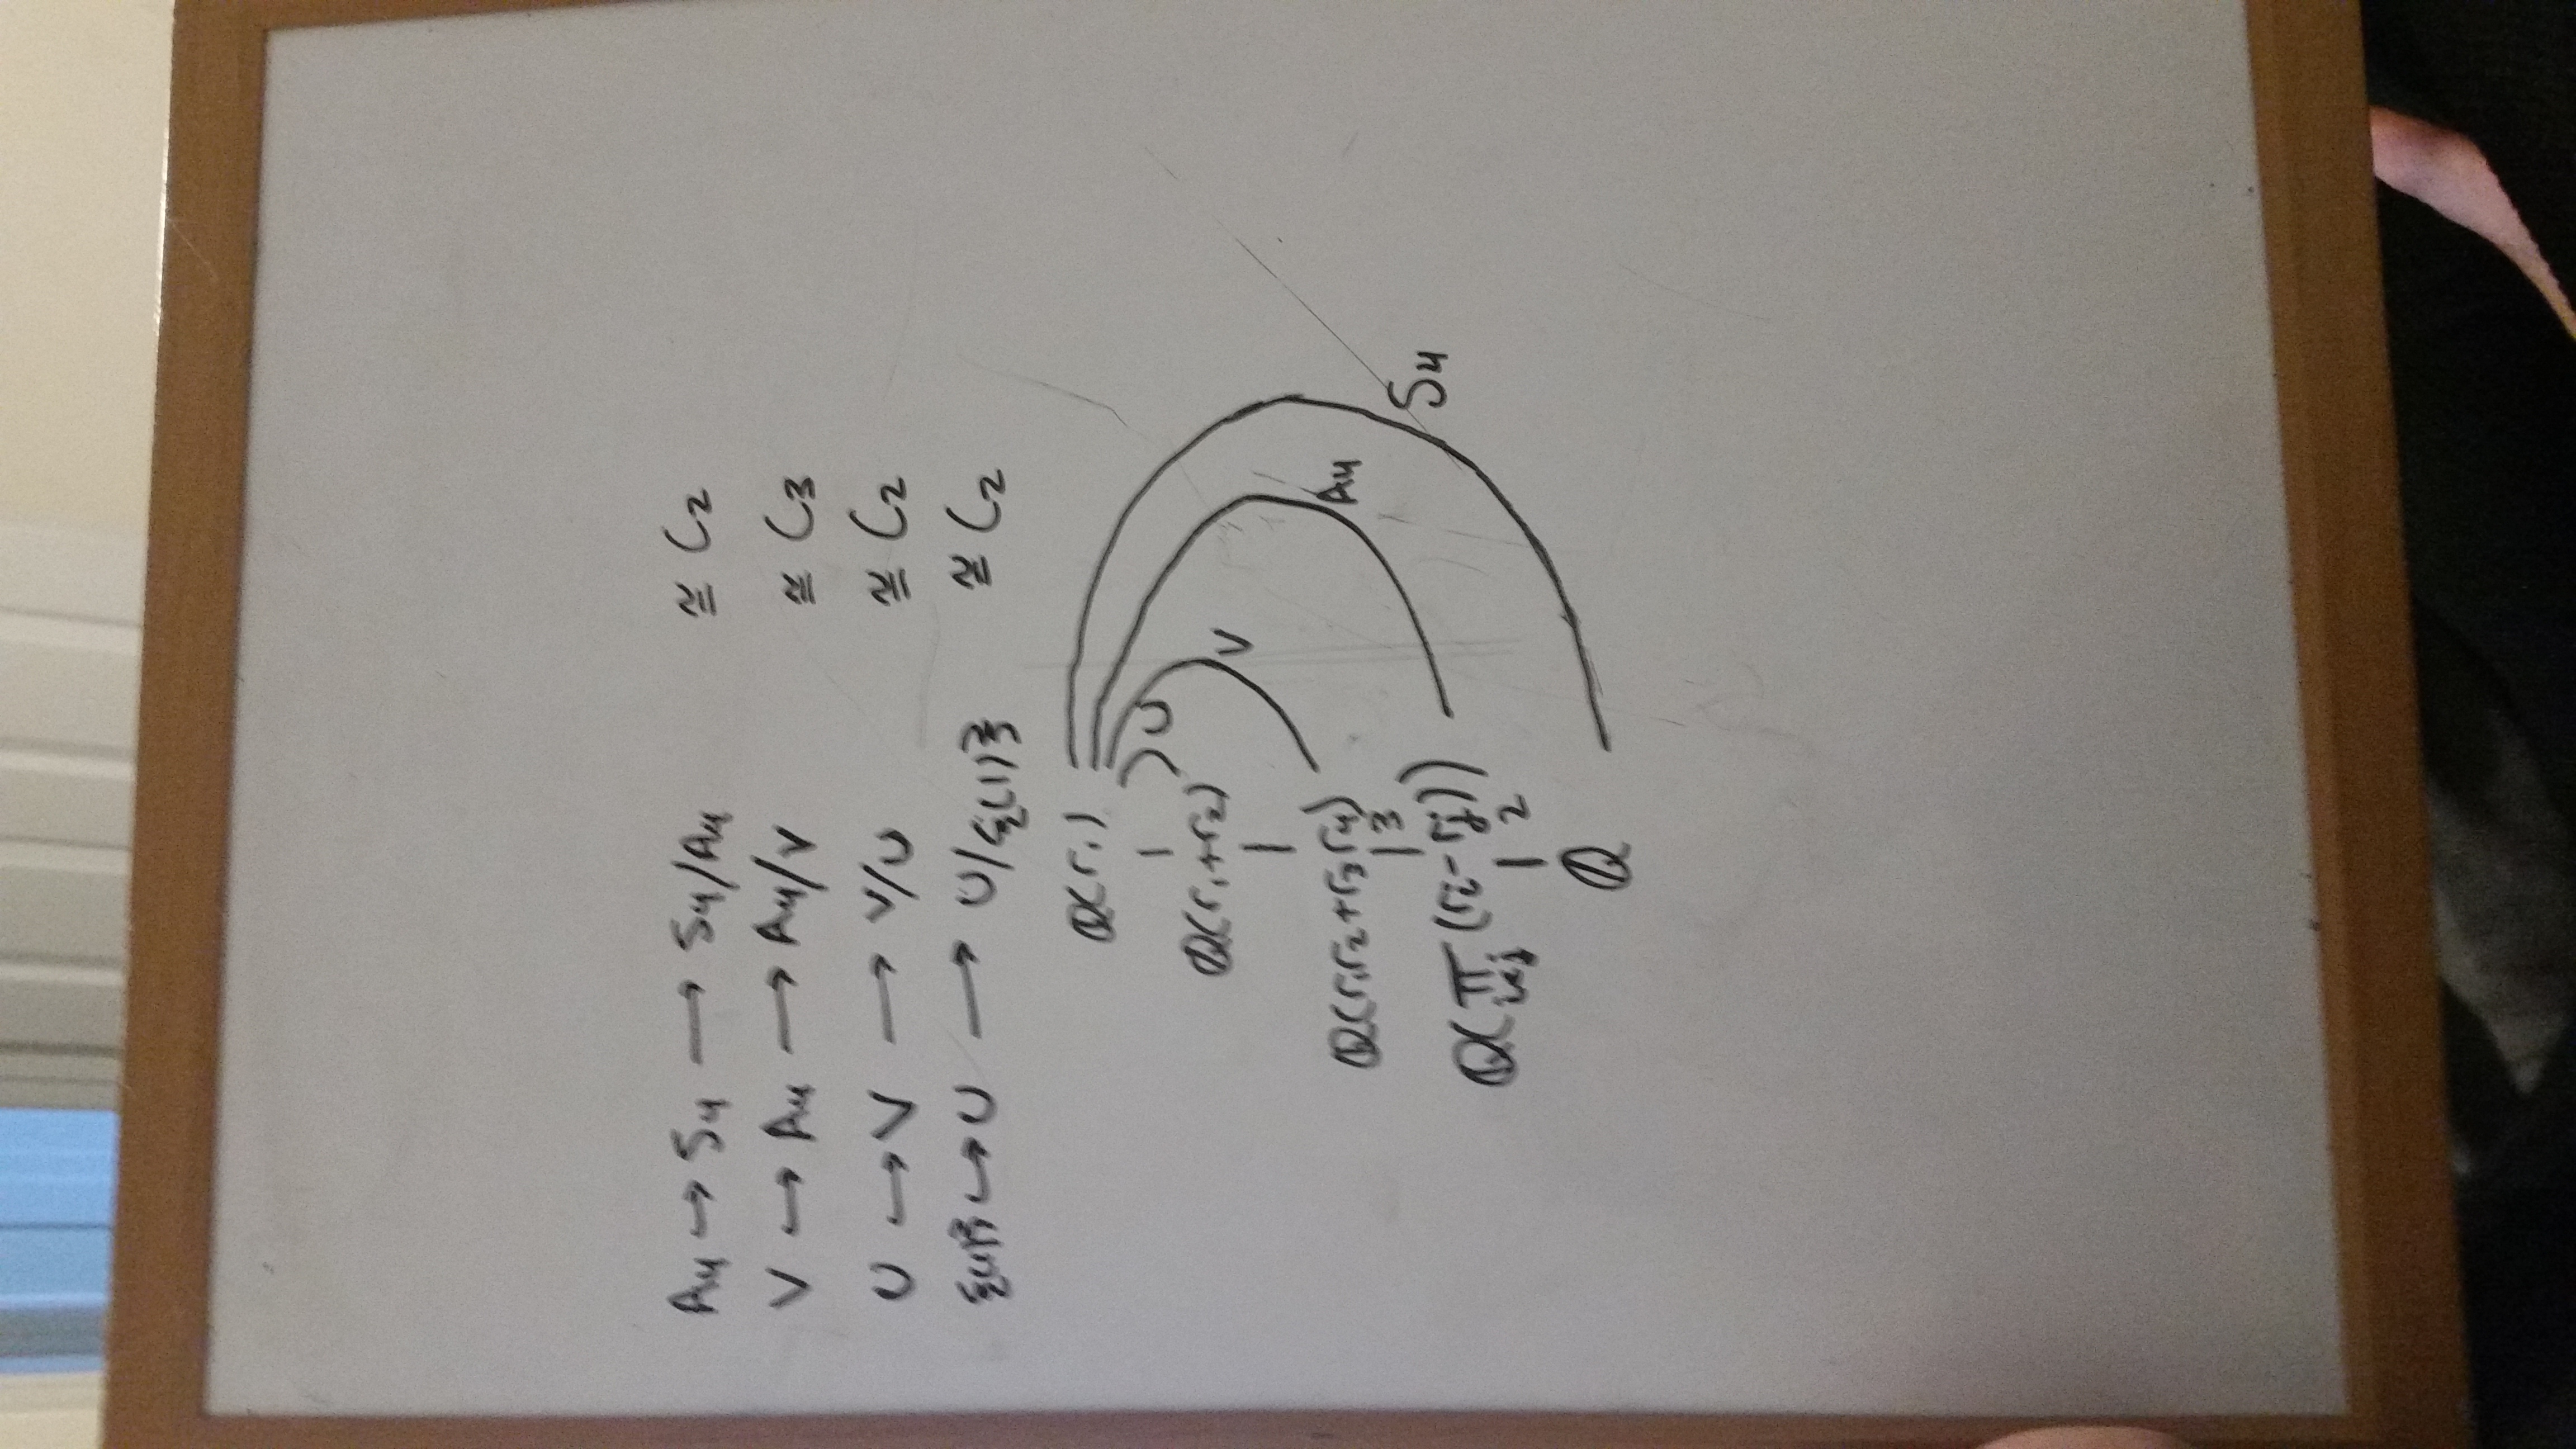 A₄ ↪ S₄ → S₄/A₄ ≅ C₂
V ↪ A₄ → A₄/V ≅ C₃
U ↪ V → V/U ≅ C₂
{(1)} ↪ U → U/{(1)} ≅ C₂
Q(r₁)
| U
Q(r₁+r₂)
| V
Q(r₁r₂+r₃r₄)
| 3 A₄
Q(∏i<j (ri-rj))
| 2 S₄
Q